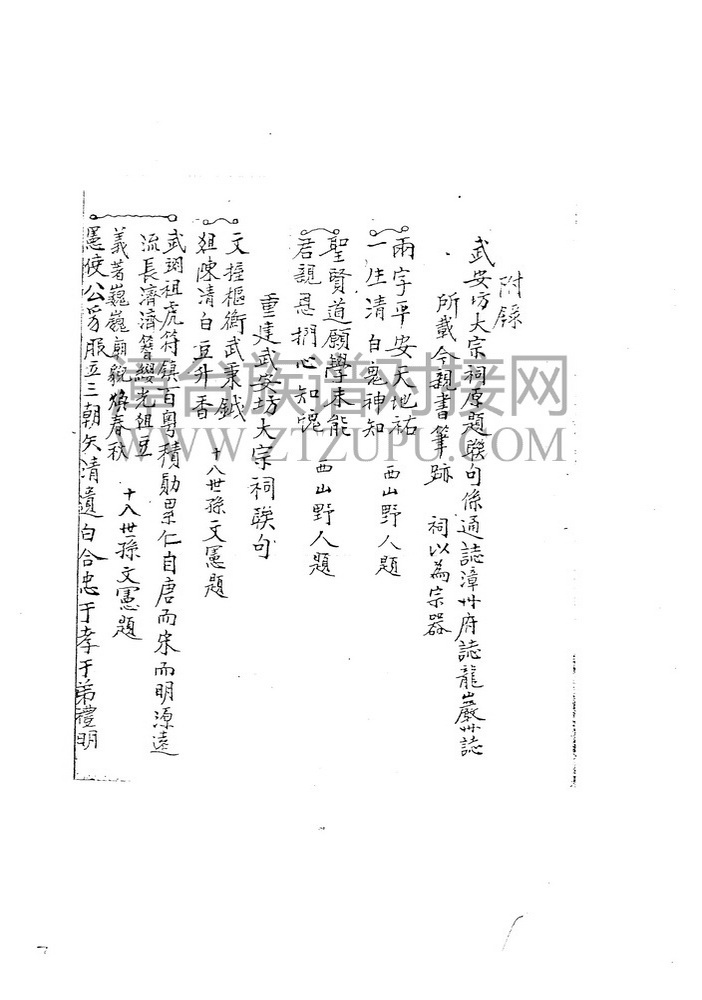 附錄
武安坊大宗祠原題聯句係通誌漳州府誌龍巖州誌
所載今親書筆跡 祠以為宗器
兩字平安天地祐
一生清白鬼神知 西山野人題
聖賢道願學未能
君親恩捫心知愧 西山野人題
重建武安坊大宗祠聯句
文握樞衡武秉鉞
俎陳清白豆升香 十八世孫文憲題
武詡祖虎符鎮百粵積勛累仁自唐而宋而明源遠
流長濟濟簪纓光俎豆
義著巍巍廟貌煥春秋 十八世孫文憲題
憲使公豸服立三朝矢清遺白合忠于孝于弟禮明
譚台族谱对接网
WWW.ZTZUPU.COM